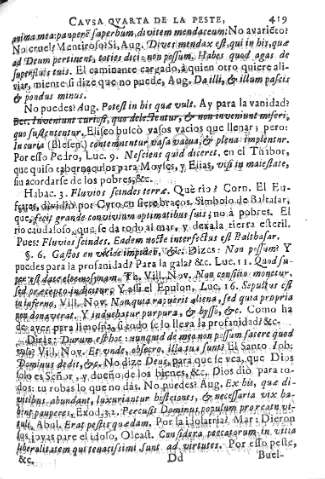 CAVSA QVARTA DE LA PESTE, 419
anima mea: pauperẽ superbum, divitem mendacem: No avariẽto?
No cruel? Mentiroso? Si, Aug. Dives mendax est, qui in his, quæ
ad Deum pertinent, toties dicit: non possum. Habes quod agas de
superfluis tuis. El caminante cargado, à quien otro quiere ali-
viar, miente si dize que no puede, Aug. Da illi, & illum pascis
& pondus minus.
No puedes? Aug. Potest in his quæ vult. Ay para la vanidad?
Ber. Inveniunt curiosi, quo delectentur, & non inveniunt miseri,
quo sustententur. Eliseo buscò vasos vacios que llenar; pero:
In curia (Blesep.) contemnuntur vasa vacua, & plena implentur.
Por esso Pedro, Luc. 9. Nesciens quid diceret, en el Thabor,
que quiso tabernaculos para Moyses, y Elias, visa maiestate,
sin acordarse de los pobres, &c.
Habac. 3. Fluvios scindes terræ. Què rio? Corn. El Eu-
frates, dividido por Cyro en siete braços. Simbolo de Baltasar,
que, fecit grande convivium optimatibus suis; no à pobres. El
rio caudaloso, que se da todo al mar, y dexa la tierra esteril.
Pues: Fluvios scindes. Eadem nocte interfectus est Balthasar.
§. 6. Gastos en vicios impidẽ, &c. Dizes: Non possum? Y
puedes para la profanidad? Para la gala? &c. Luc. 11. Quod su-
perest date eleemosynam. Th. Vill. Nov. Non consiliũ monetur,
sed præcepto iubetur. Y assi el Epulon, Luc. 16. Sepultus est
in inferno, Vill. Nov. Non quia rapuerit aliena, sed quia propria
non donaverat. Y induebatur purpura, & bysso, &c. Como ha
de aver para limosna, si todo se lo lleva la profanidad? &c.
Diràs: Durum est hoc: nunquid de meo non possum facere quod
volo? Vill. Nov. Et vnde, obsecro, illa tua sunt? El Santo Job:
Dominus dedit, &c. No dize Deus, para que se vea, que Dios
solo es Señor, y dueño de los bienes, &c. Dios diò para to-
dos: tu robas lo que no dàs. No puedes? Aug. Ex his, quæ di-
vitibus abundant, luxuriantur histriones, & necessaria vix ha-
bent pauperes, Exod. 32. Percussit Dominus populum pro reatu vi-
tuli, Abul. Erat pestis quædam. Por la idolatria? Mar: Dieron
las joyas para el idolo, Oleast. Considera peccatorum in vitia
liberalitatem qui tenacissimi sunt ad virtutes. Por esso peste,
&c. Dd Buel-